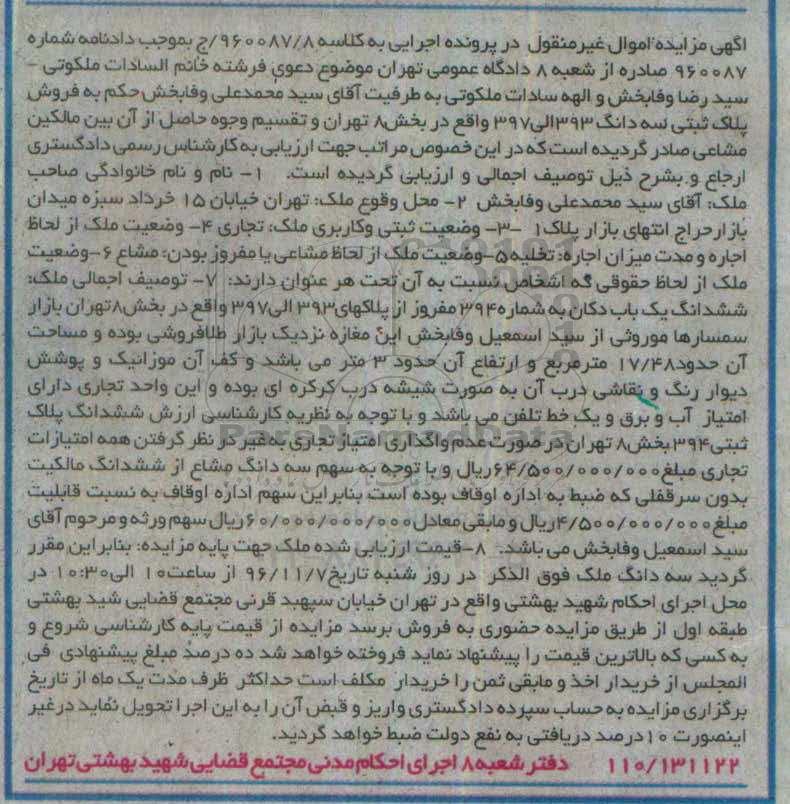 اگهی مزایده اموال غیرمنقول در پرونده اجرایی به کلاسه ۹۶۰۰۸۷/۸/ج بموجب دادنامه شماره
۹۶۰۰۸۷ صادره از شعبه ۸ دادگاه عمومی تهران موضوع دعوی فرشته خانم السادات ملکوتی -
سید رضا وفابخش و الهه سادات ملکوتی به طرفیت آقای سید محمدعلی وفابخش حکم به فروش
پلاک ثبتی سه دانگ ۳۹۳الی۳۹۷ واقع در بخش۸ تهران و تقسیم وجوه حاصل از آن بین مالکین
مشاعی صادر گردیده است که در این خصوص مراتب جهت ارزیابی به کارشناس رسمی دادگستری
ارجاع و بشرح ذیل توصیف اجمالی و ارزیابی گردیده است. ۱- نام و نام خانوادگی صاحب
ملک: آقای سید محمدعلی وفابخش ۲- محل وقوع ملک: تهران خیابان ۱۵ خرداد سبزه میدان
بازارحراج انتهای بازار پلاک۱ -۳- وضعیت ثبتی وکاربری ملک: تجاری ۴- وضعیت ملک از لحاظ
اجاره و مدت میزان اجاره: تخلیه ۵-وضعیت ملک از لحاظ مشاعی یا مفروز بودن: مشاع ۶-وضعیت
ملک از لحاظ حقوقی که اشخاص نسبت به آن تحت هر عنوان دارند: ۷- توصیف اجمالی ملک:
ششدانگ یک باب دکان به شماره۳۹۴ مفروز از پلاکهای۳۹۳ الی۳۹۷ واقع در بخش۸تهران بازار
سمسارها موروثی از سید اسمعیل وفابخش این مغازه نزدیک بازار طلافروشی بوده و مساحت
آن حدود۱۷/۴۸ مترمربع و ارتفاع آن حدود ۳ متر می باشد و کف آن موزائیک و پوشش
دیوار رنگ و نقاشی درب آن به صورت شیشه درب کرکره ای بوده و این واحد تجاری دارای
امتیاز آب و برق و یک خط تلفن می باشد و با توجه به نظریه کارشناسی ارزش ششدانگ پلاک
ثبتی۳۹۴ بخش۸ تهران در صورت عدم واگذاری امتیاز تجاری به غیر در نظر گرفتن همه امتیازات
تجاری مبلغ۶۴/۵۰۰/۰۰۰/۰۰۰ریال و با توجه به سهم سه دانگ مشاع از ششدانگ مالکیت
بدون سرقفلی که ضبط به اداره اوقاف بوده است بنابراین سهم اداره اوقاف به نسبت قابلیت
مبلغ۴/۵۰۰/۰۰۰/۰۰۰ریال و مابقی معادل۶۰/۰۰۰/۰۰۰/۰۰۰ریال سهم ورثه و مرحوم آقای
سید اسمعیل وفابخش می باشد. ۸-قیمت ارزیابی شده ملک جهت پایه مزایده: بنابراین مقرر
گردید سه دانگ ملک فوق الذکر در روز شنبه تاریخ۹۶/۱۱/۷ از ساعت۱۰ الی۱۰:۳۰ در
محل اجرای احکام شهید بهشتی واقع در تهران خیابان سپهبد قرنی مجتمع قضایی شید بهشتی
طبقه اول از طریق مزایده حضوری به فروش برسد مزایده از قیمت پایه کارشناسی شروع و
به کسی که بالاترین قیمت را پیشنهاد نماید فروخته خواهد شد ده درصد مبلغ پیشنهادی فی
المجلس از خریدار اخذ و مابقی ثمن را خریدار مکلف است حداکثر ظرف مدت یک ماه از تاریخ
برگزاری مزایده به حساب سپرده دادگستری واریز و قبض آن را به این اجرا تحویل نماید درغیر
اینصورت ۱۰درصد دریافتی به نفع دولت ضبط خواهد گردید.
۱۱۰/۱۳۱۱۲۲ دفتر شعبه۸ اجرای احکام مدنی مجتمع قضایی شهید بهشتی تهران